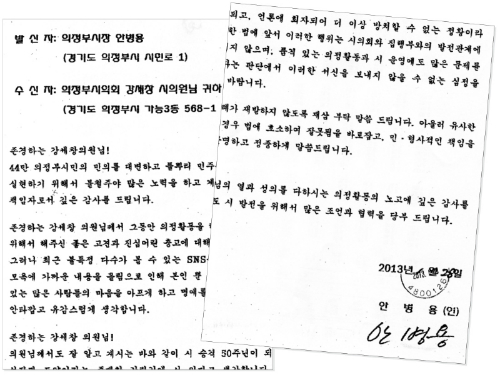 발 신 자: 의정부시장 안병용
(경기도 의정부시 시민로 1)
수 신 자: 의정부시의회 강세창 시의원님 귀하
(경기도 의정부시 가능3동 568-1
존경하는 강세창의원님!
44만 의정부시민의 민의를 대변하고 풀뿌리 민주
실현하기 위해서 불철주야 많은 노력을 하고 계
책임자로서 깊은 감사를 드립니다.
존경하는 강세창 의원님께서 그동안 의정활동을
위해서 해주신 좋은 고견과 진심어린 충고에 대해
그러나 최근 불특정 다수가 볼 수 있는 SNS
모욕에 가까운 내용을 올림으로 인해 본인 뿐
있는 많은 사람들의 마음을 아프게 하고 명예를
안타깝고 유감스럽게 생각합니다.
존경하는 강세창 의원님!
의원님께서도 잘 알고 계시는 바와 같이 시 승격 50주년이 되
되고, 언론에 회자되어 더 이상 방치할 수 없는 정황이라
한 법에 앞서 이러한 행위는 시의회와 집행부와의 발전관계에
지 않으며, 품격 있는 의정활동과 시 운영에도 많은 문제를
는 판단에서 이러한 서신을 보내지 않을 수 없는 심정을
바랍니다.
태가 재발하지 않도록 재삼 부탁 말씀 드립니다. 아울러 유사한
경우 법에 호소하여 잘못됨을 바로잡고, 민·형사적인 책임을
명하고 정중하게 말씀드립니다.
님의 열과 성의를 다하시는 의정활동의 노고에 깊은 감사를
도 시 발전을 위해서 많은 조언과 협력을 당부 드립니다.
2013년
안 병 용 (인)
안병용